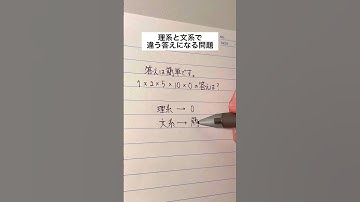 理系と文系で
違う答えになる問題
答えは簡単です。
1×2×5×10×0の答えは?
理系→0
文系→簡